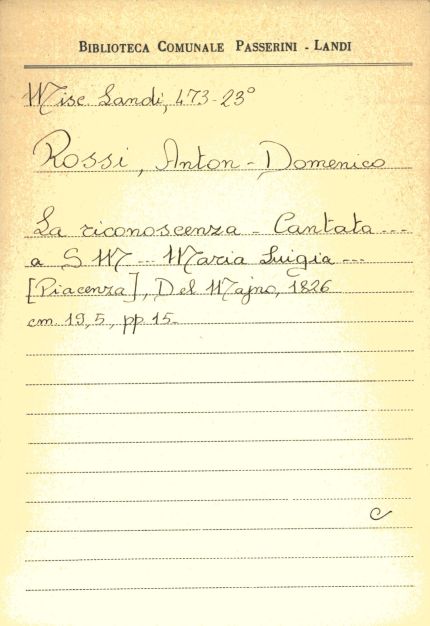 BIBLIOTECA COMUNALE PASSERINI - LANDI
Misc. Landi, 473-23°
Rossi, Anton-Domenico
La riconoscenza - Cantata ---
a S M --- Maria Luigia ---
[Piacenza], Del Majno, 1826
cm. 19,5, pp. 15.
C